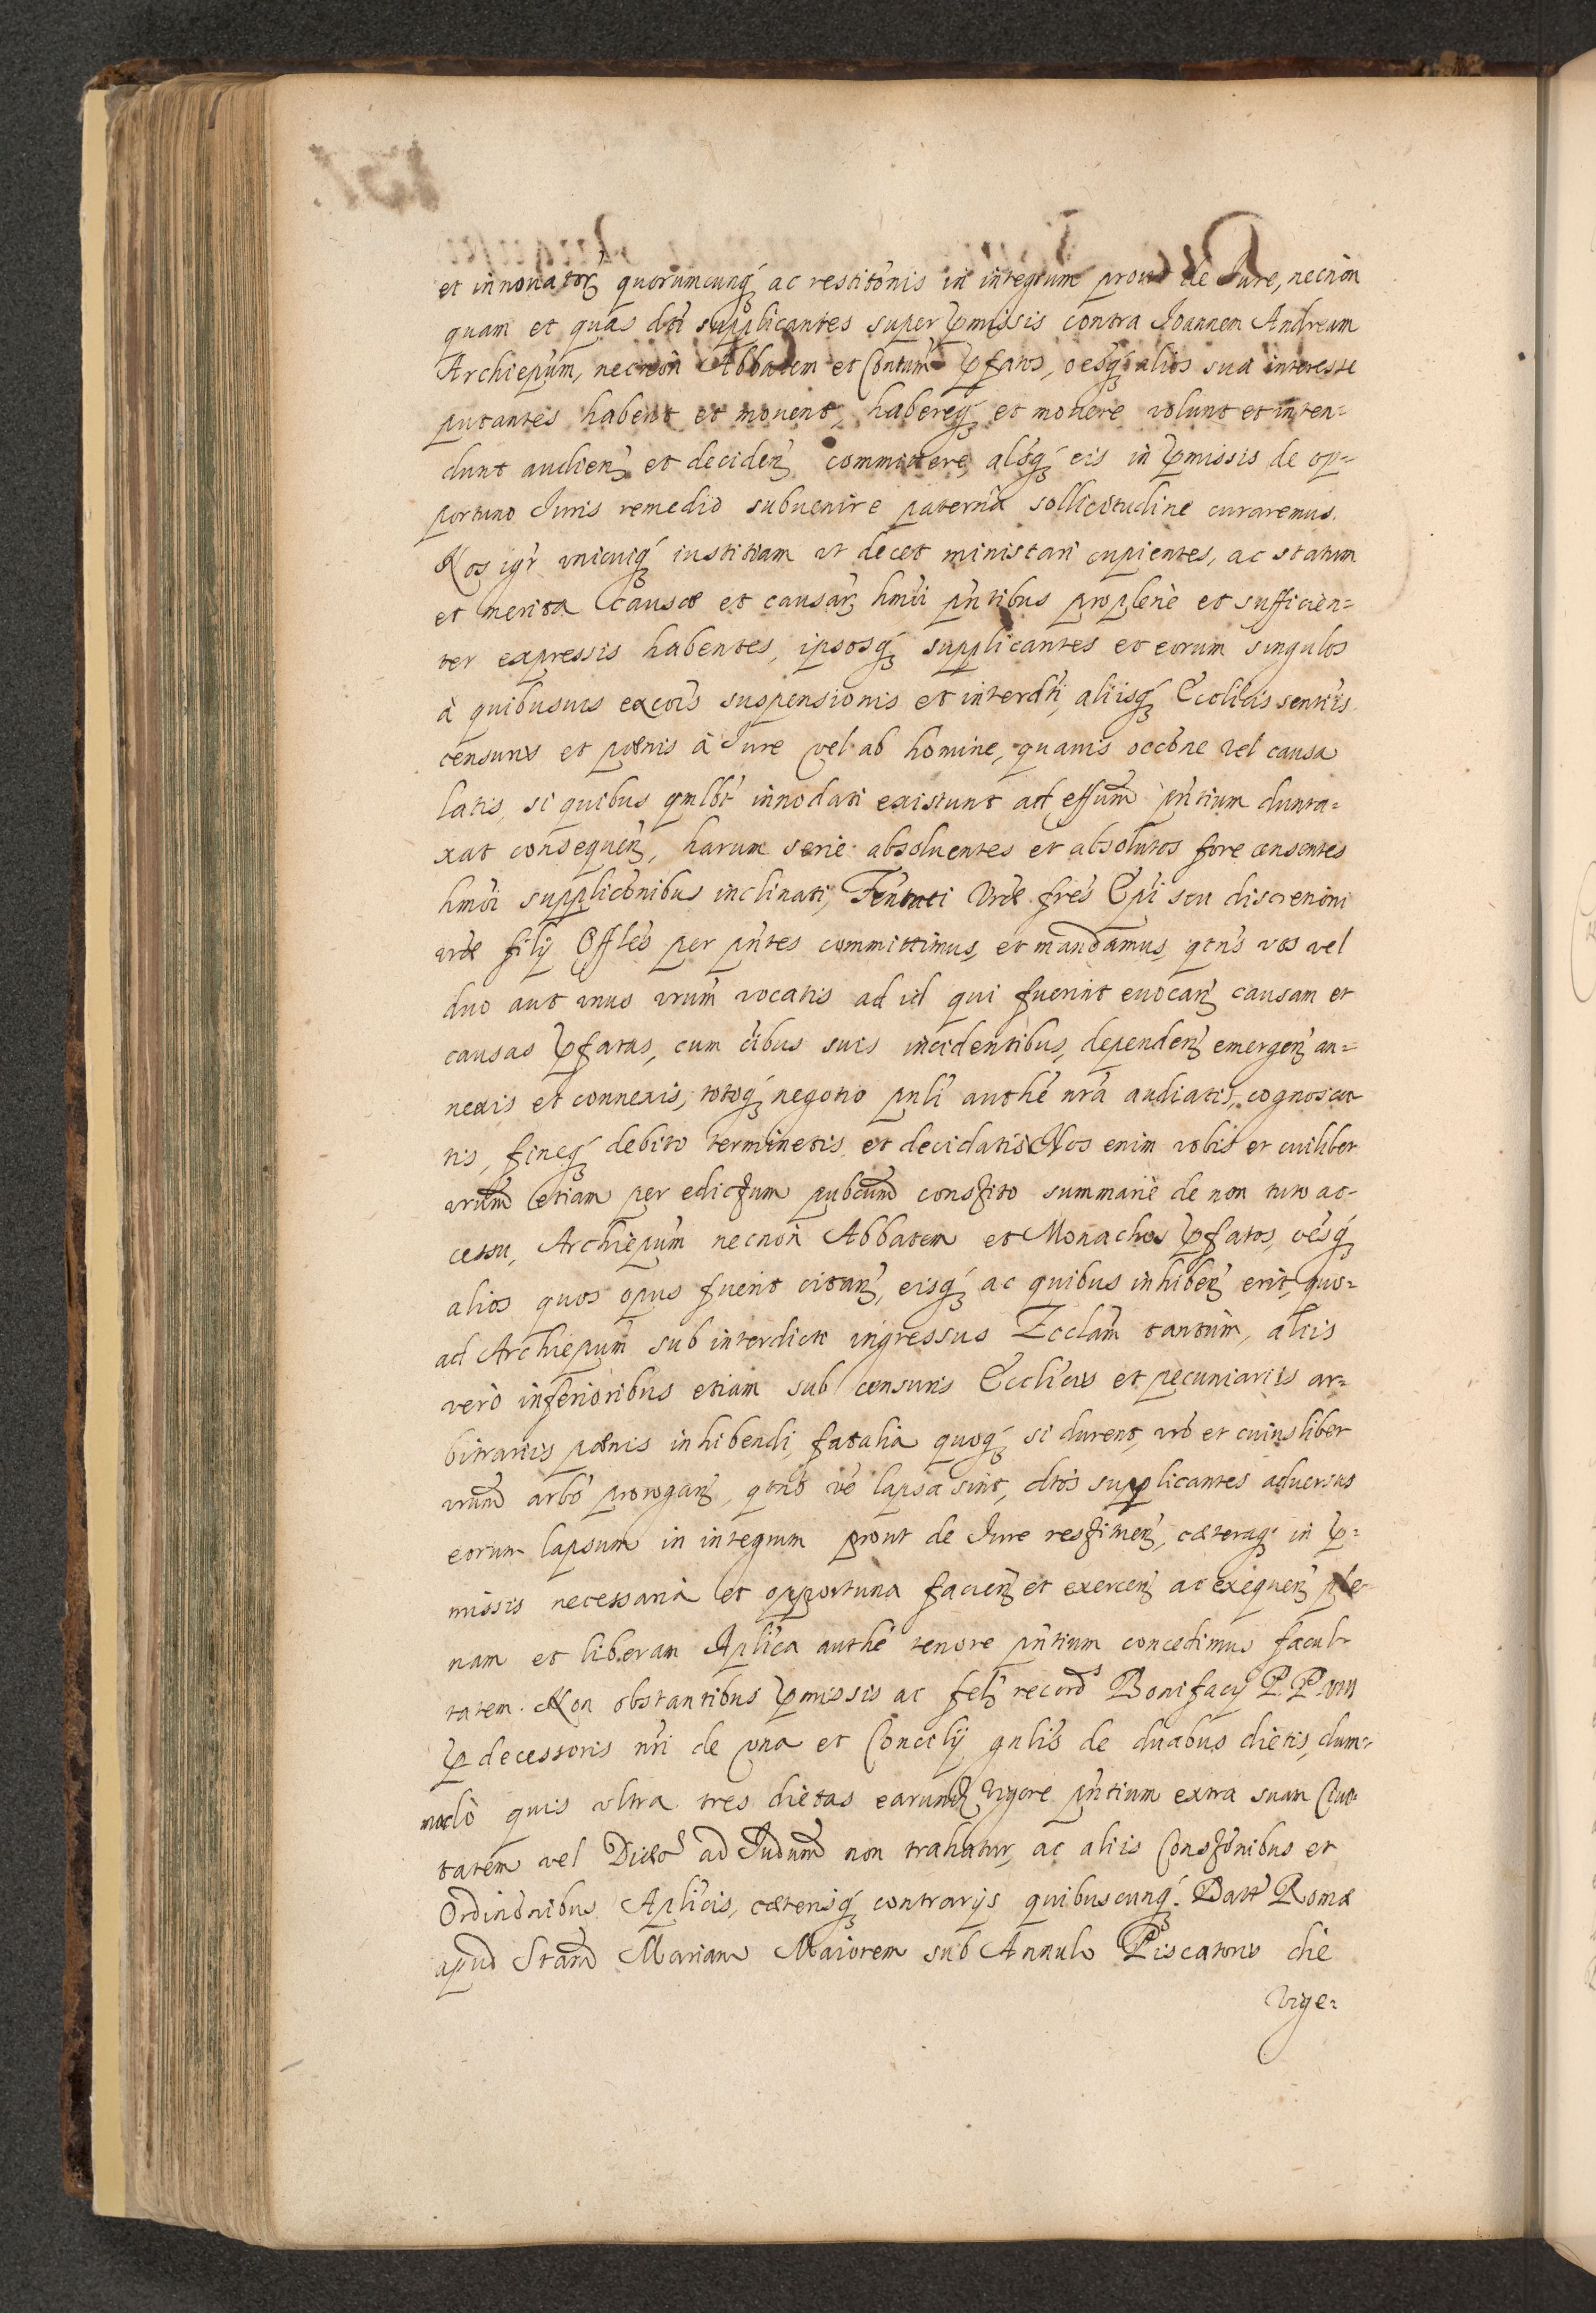 et innouator̃ quorumcunq́ʒ ac restitõnis in integrum prout de Jure, necnon
quam et quas dti supplicantes super p̃missis contra Joannem Andream
Archiepũm, necnon Abbatem et Conuũm p̃fatos, oesq́ʒ alios sua interesse
putantes habent et mouent, habereq́ʒ et mouere volunt et inten=
dunt audien̄ʒ et deciden̄ʒ committere, alsq́ʒ eis in p̃missis de op=
portuno Juris remedio subuenire paterna sollicitudine curaremus.
Nos igr̃ vnicuiq́ʒ iustitiam vt decet ministari cupientes, ac statum
et merita causæ et causar̃ hmõi pñtibus pro plene et sufficien=
ter expressis habentes, ipsosq́ʒ supplicantes et eorum singulos
à quibusuis excõis suspensionis et interdti, aliisq́ʒ Ecclicis sentiis
censuris et pœnis à Jure vel ab homine, quauis occõne vel causa
latis, si quibus qmlbt innodati existunt ad effum̃ pñtium dunta=
xat consequen̄ʒ, harum serie absoluentes et absolutos fore censentes
hmõi supplicõnibus inclinati, Frñtati Vræ frẽs Epĩ seu discretioni
vræ filÿ Offlẽs per pñtes committimus, et mandamus, qtñs vos vel
duo aut vnus vrũm vocatis ad id qui fuerint euocan̄ʒ causam et
causas p̃fatas, cum õibus suis incidentibus, dependen̄ʒ emergen̄ʒ an=
nexis et connexis, totoq́ʒ negotio pnli authẽ nrã audiatis, cognosca
tis, fineq́ʒ debito terminetis et decidatis Nos enim vobis et cuilibet
vrũm etiam per edictum pubcum̃ constito summarie de non tuto ac-
cessu, Archiepũm necnon Abbatem et Monachos p̃fatos, oẽsq́ʒ
alios quos opus fuerit citan̄ʒ, eisq́ʒ ac quibus inhiben̄ʒ erit, quo=
ad Archiepũm sub interdicti ingressus Ecclãm tantùm, aliis
verò inferioribus etiam sub censuris Ecclicis et pecuniariis ar=
bitrariis pœnis inhibendi, fatalia quoq́ʒ si durent, vrõ et cuiuslibet
vrũm arbõ prorogan̄ʒ, qtnũs vẽ lapsa sint, dtõs supplicantes aduersus
eorum lapsum in integrum prout de Jure restituen̄ʒ, cæteraq́ʒ in p̃=
missis necessaria et opportuna facien̄ʒ et exercen̄ʒ ac exequen̄ʒ ple-
nam et liberam Aplica authẽ tenore pñtium concedimus facul-
tatem. Non obstantibus p̃missis ac fel. record. Bonifacÿ P. P. VIII
p̃decessoris nri de vna et Concilÿ gnlis de duabus dietis, dum=
modò quis vltra tres dietas earundʒ vigore pñtium extra suam Ciui-
tatem vel Diœc ad Judum̃ non trahatur, ac aliis Constõnibus et
Ordinõnibus Aplicis, cæterisq́ʒ contrarÿs quibuscunq́ʒ. Datt Romæ
apud Stam̃ Mariam Maiorem sub Annulo Piscatoris die
vige=